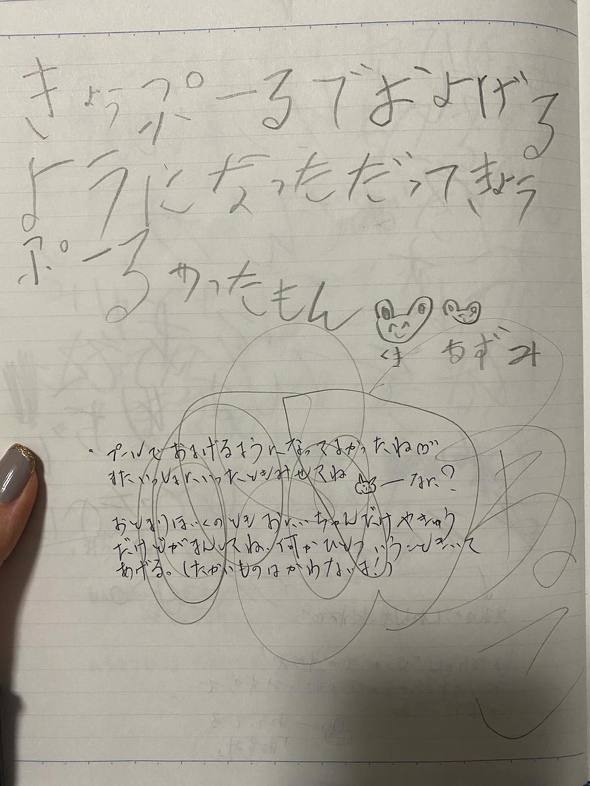 きょうぷーるでおよげる
ようになっただってきょう
ぷーるやったもん
くま ねずみ
・プールでおよげるようになってよかったね
またいっしょにいったときみせてね ーなに?
おとまりほいくのとき おにいちゃんだけやきゅう
だけどがまんしてね、何かひとついうこときいて
あげる。(たかいものはかわないよ!)